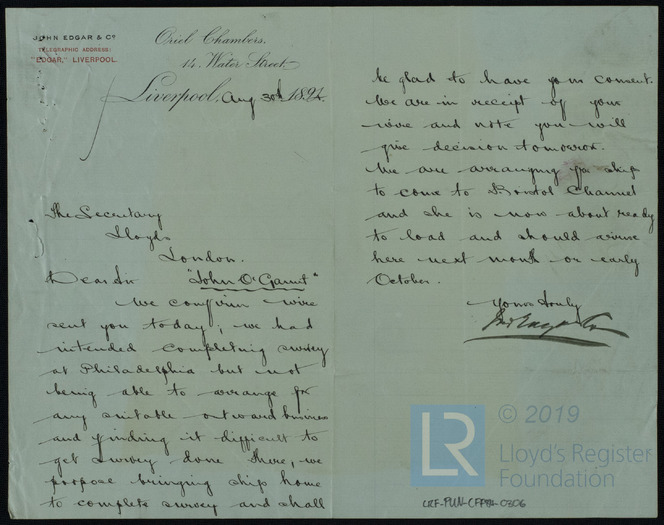 JOHN EDGAR & Co
TELEGRAPHIC ADDRESS:
"EDGAR," LIVERPOOL.
Oriel Chambers,
14, Water Street,
Liverpool, Aug 30th 1894.
The Secretary
Lloyds
London.
Dear Sir "John O'Gaunt"
We confirm wire
sent you today; we had
intended completing survey
at Philadelphia but not
being able to arrange for
any suitable outward business
and finding it difficult to
get survey done there, we
propose bringing ship home
to complete survey and shall
be glad to have your consent.
We are in receipt of your
wire and note you will
give decision tomorrow.
We are arranging for ship
to come to Bristol Channel
and she is now about ready
to load and should arrive
here next month or early
October.
Yours truly
Jno Edgar & Co
LR
© 2019
Lloyd's Register
Foundation
LRF-PUN-CFP94-0306